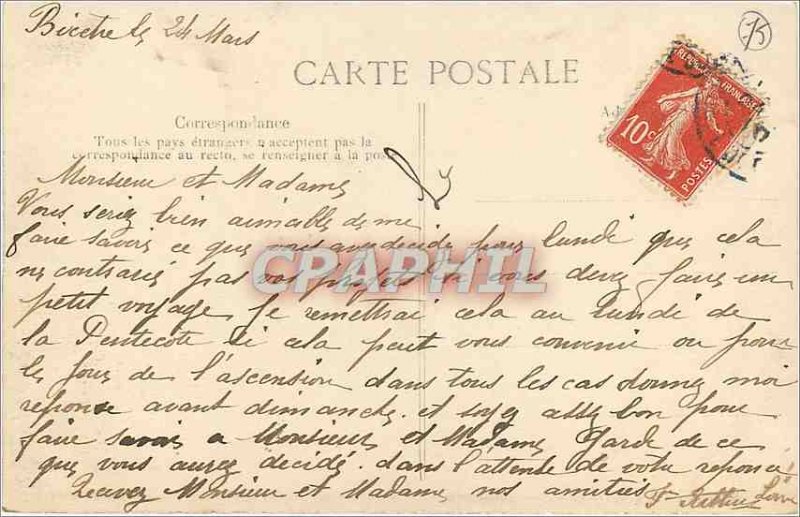 Bicêtre le 24 Mars
15
CARTE POSTALE
Correspondance
Tous les pays étrangers n'acceptent pas la
correspondance au recto, se renseigner à la poste
REPUBLIQUE FRANÇAISE
10c
POSTES
Monsieur et Madame
Vous seriez bien aimable de me
faire savoir ce que vous avez decidé pour lundi que cela
ne contrarie pas vos projets si vous devez faire un
petit voyage je remettrai cela au lundi de
la Pentecote si cela peut vous convenir ou pour
le jour de l'ascension dans tous les cas donnez moi
reponse avant dimanche. et soyez assez bon pour
faire savoir a Monsieur et Madame Garde de ce
que vous aurez decidé. dans l'attente de votre reponse
Recevez Monsieur et Madame nos amitiés
CPAPHIL